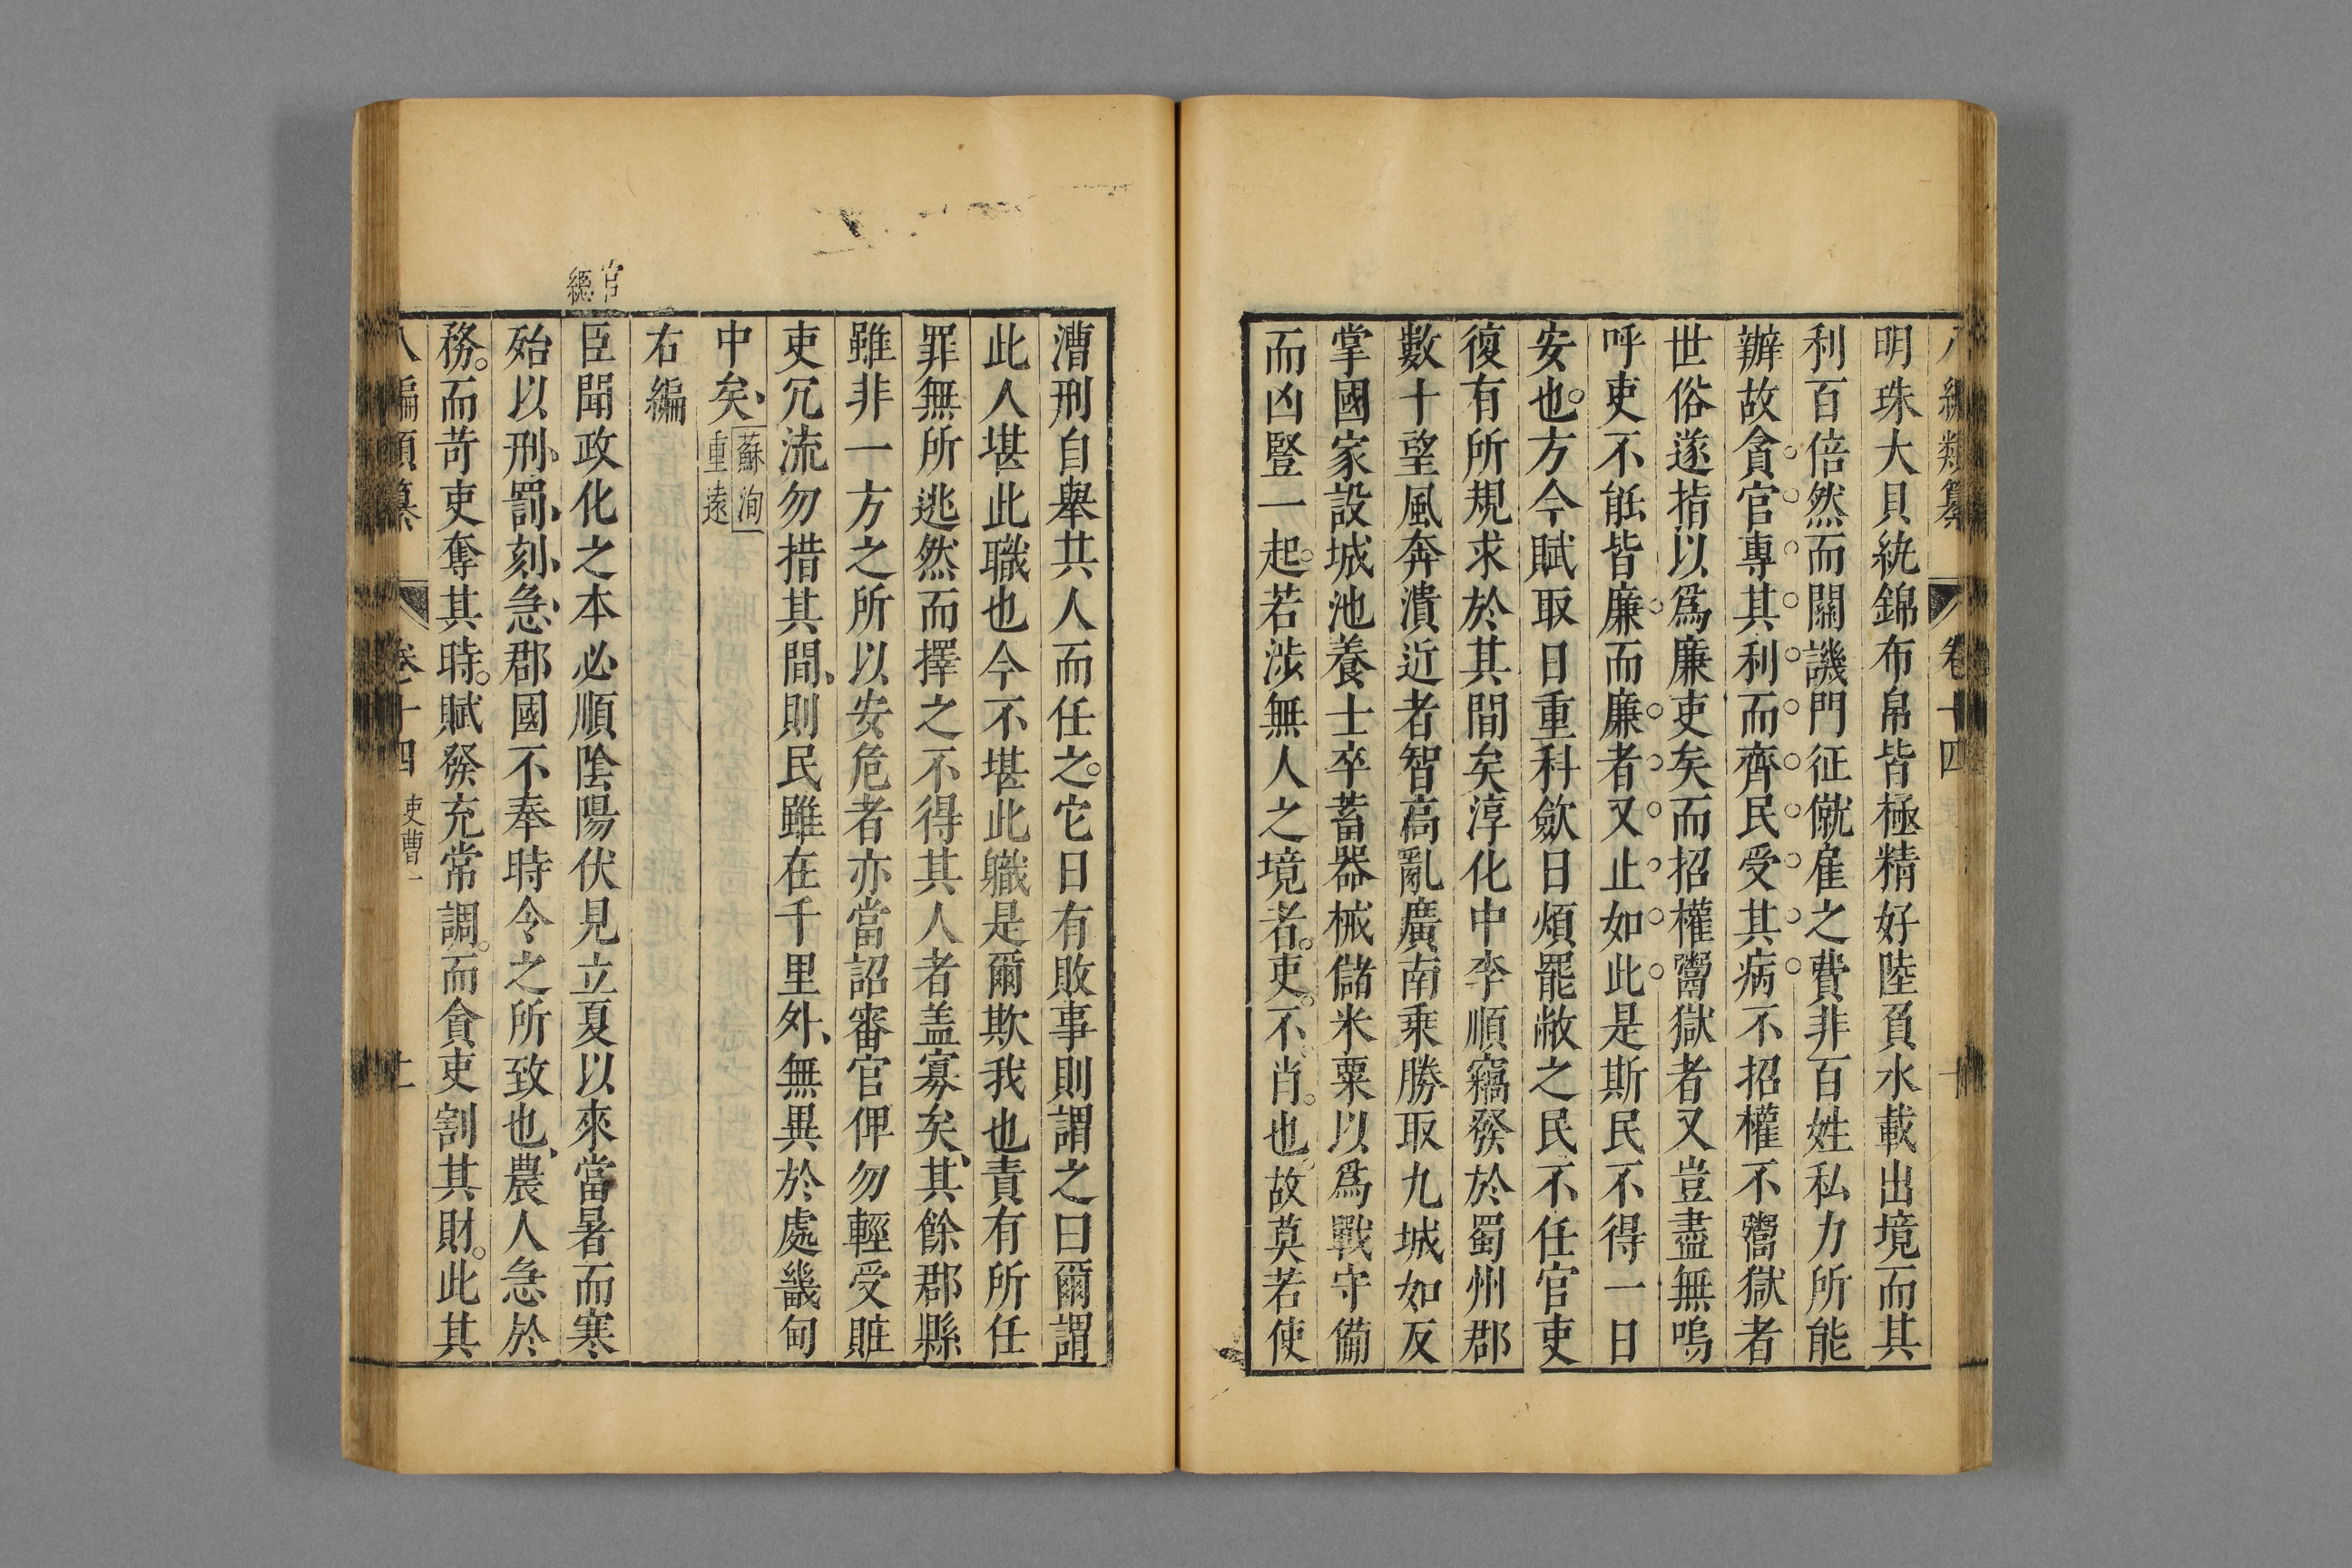 八編類纂 卷十四 十
明珠大貝紈錦布帛皆極精好陸負水載出境而其
利百倍然而關譏門征僦雇之費非百姓私力所能
辦故貪官專其利而齊民受其病不招權不鬻獄者
世俗遂指以爲廉吏矣而招權鬻獄者又豈盡無嗚
呼吏不能皆廉而廉者又止如此是斯民不得一日
安也方今賦取日重科歛日煩罷敝之民不任官吏
復有所規求於其間矣淳化中李順竊發於蜀州郡
數十望風奔潰近者智高亂廣南乗勝取九城如反
掌國家設城池養士卒蓄器械儲米粟以爲戰守備
而凶豎一起若涉無人之境者吏不肖也故莫若使
漕刑自舉其人而任之它日有敗事則謂之曰爾謂
此人堪此職也今不堪此職是爾欺我也責有所任
罪無所逃然而擇之不得其人者盖寡矣其餘郡縣
雖非一方之所以安危者亦當詔審官俾勿輕受賍
吏冗流勿措其間則民雖在千里外無異於處畿甸
中矣 蘇洵
重遠
右編
官
緫
臣聞政化之本必順隂陽伏見立夏以來當暑而寒
殆以刑罰刻急郡國不奉時令之所致也農人急於
務而苛吏奪其時賦發充常調而貪吏割其財此其
八編類纂 卷十四 吏曹一 十一